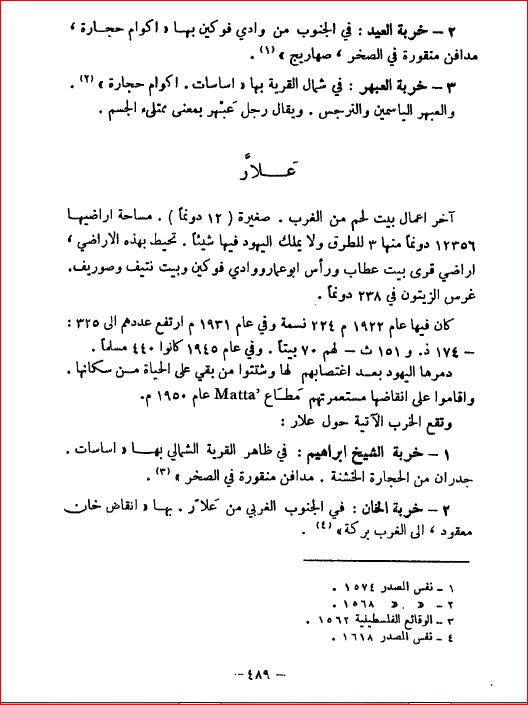 ٢ – خربة العيد : في الجنوب من وادي فوكين بها « اكوام حجارة ،
مدافن منقورة في الصخر ، صهاريج » (١) .
٣ – خربة العبهر : في شمال القرية بها « اساسات . اكوام حجارة » (٢) .
والعبهر الياسمين والنرجس . ويقال رجل عَبْهر بمعنى ممتلىء الجسم .
عَـلاَّر
آخر اعمال بيت لحم من الغرب . صغيرة ( ١٢ دونماً ) . مساحة اراضيها
١٢٣٥٦ دونماً منها ٣ للطرق ولا يملك اليهود فيها شيئاً . تحيط بهذه الاراضي ،
اراضي قرى بيت عطاب ورأس ابوعمار ووادي فوكين وبيت نتيف وصوريف.
غرس الزيتون في ٢٣٨ دونماً .
كان فيها عام ١٩٢٢ م ٢٢٤ نسمة وفي عام ١٩٣١ م ارتفع عددهم الى ٣٢٥ :
– ١٧٤ ذ. و ١٥١ ث – لهم ٧٠ بيتاً . وفي عام ١٩٤٥ كانوا ٤٤٠ مسلماً .
دمرها اليهود بعد اغتصابهم لها وشتتوا من بقي على الحياة من سكانها .
واقاموا على انقاضها مستعمرتهم مَطاع Matta' عام ١٩٥٠ م.
وتقع الخرب الآتية حول علار :
١ – خربة الشيخ ابراهيم : في ظاهر القرية الشمالي بها « اساسات .
جدران من الحجارة الخشنة . مدافن منقورة في الصخر » (٣) .
٢ – خربة الخان : في الجنوب الغربي من عَلاَّر . بها « انقاض خان
معقود ، الى الغرب بركة» (٤) .
١ – نفس المصدر ١٥٧٤ .
٢ – « . « ١٥٦٨ .
٣ – الوقائع الفلسطينية ١٥٦٢ .
٤ – نفس المصدر ١٦١٨ .
– ٤٨٩ –